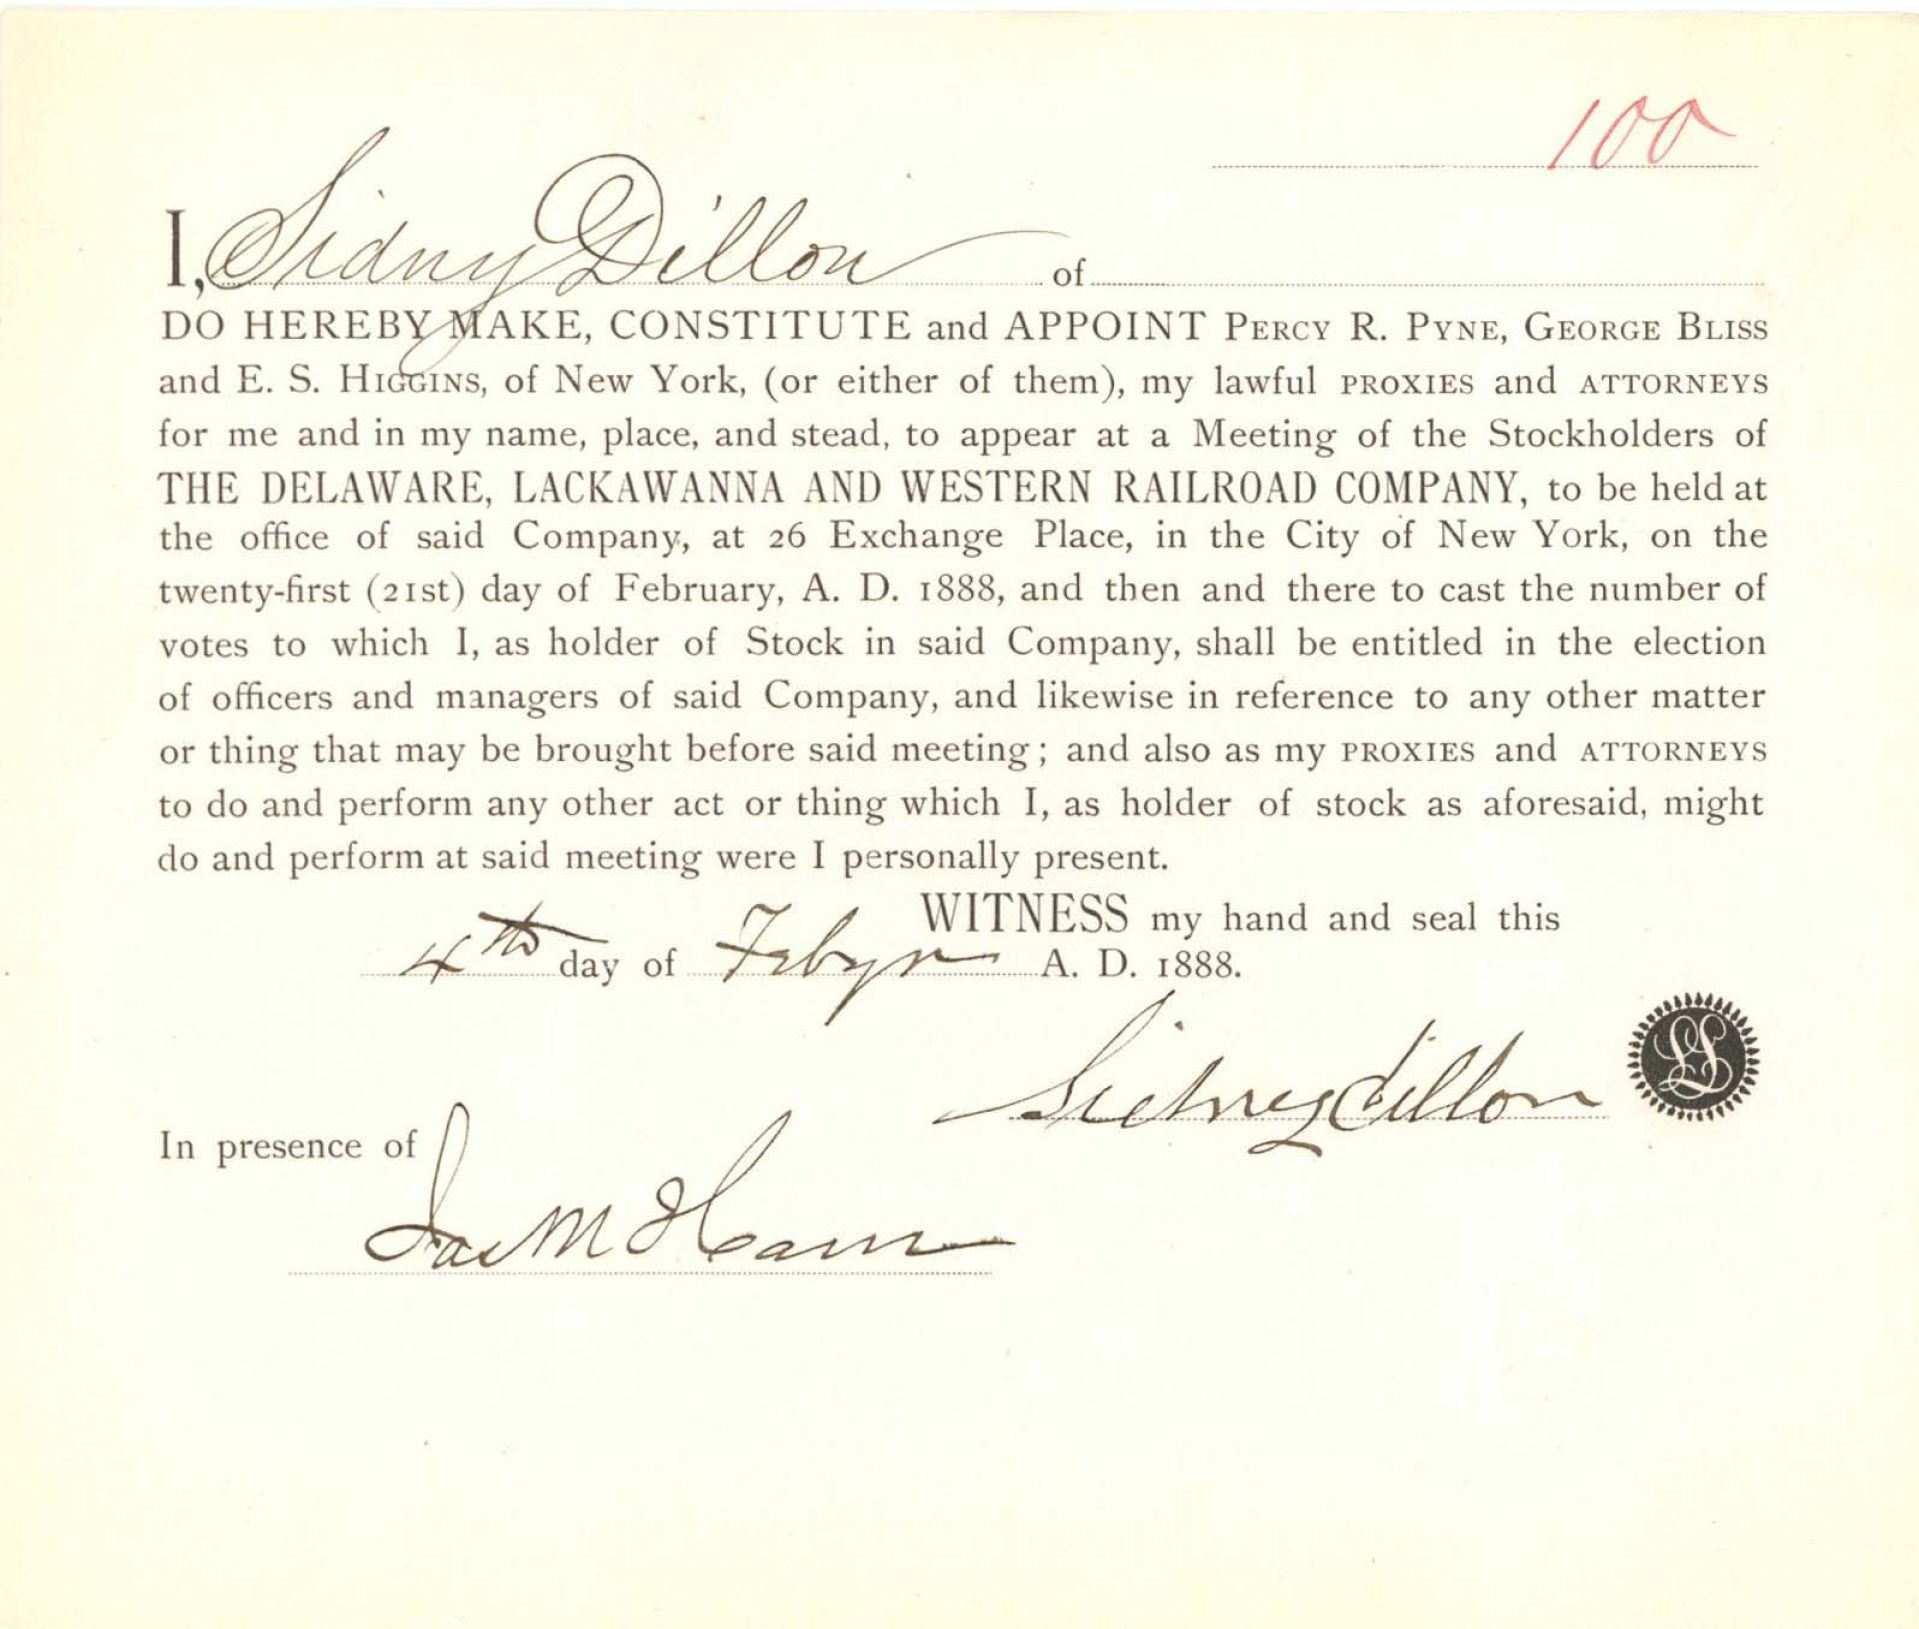 100
I, Sidny Dillon of
DO HEREBY MAKE, CONSTITUTE and APPOINT PERCY R. PYNE, GEORGE BLISS
and E. S. HIGGINS, of New York, (or either of them), my lawful PROXIES and ATTORNEYS
for me and in my name, place, and stead, to appear at a Meeting of the Stockholders of
THE DELAWARE, LACKAWANNA AND WESTERN RAILROAD COMPANY, to be held at
the office of said Company, at 26 Exchange Place, in the City of New York, on the
twenty-first (21st) day of February, A. D. 1888, and then and there to cast the number of
votes to which I, as holder of Stock in said Company, shall be entitled in the election
of officers and managers of said Company, and likewise in reference to any other matter
or thing that may be brought before said meeting; and also as my PROXIES and ATTORNEYS
to do and perform any other act or thing which I, as holder of stock as aforesaid, might
do and perform at said meeting were I personally present.
WITNESS my hand and seal this
4th day of Febyr A. D. 1888.
Sidney Dillon
LS
In presence of
Jas M Ham